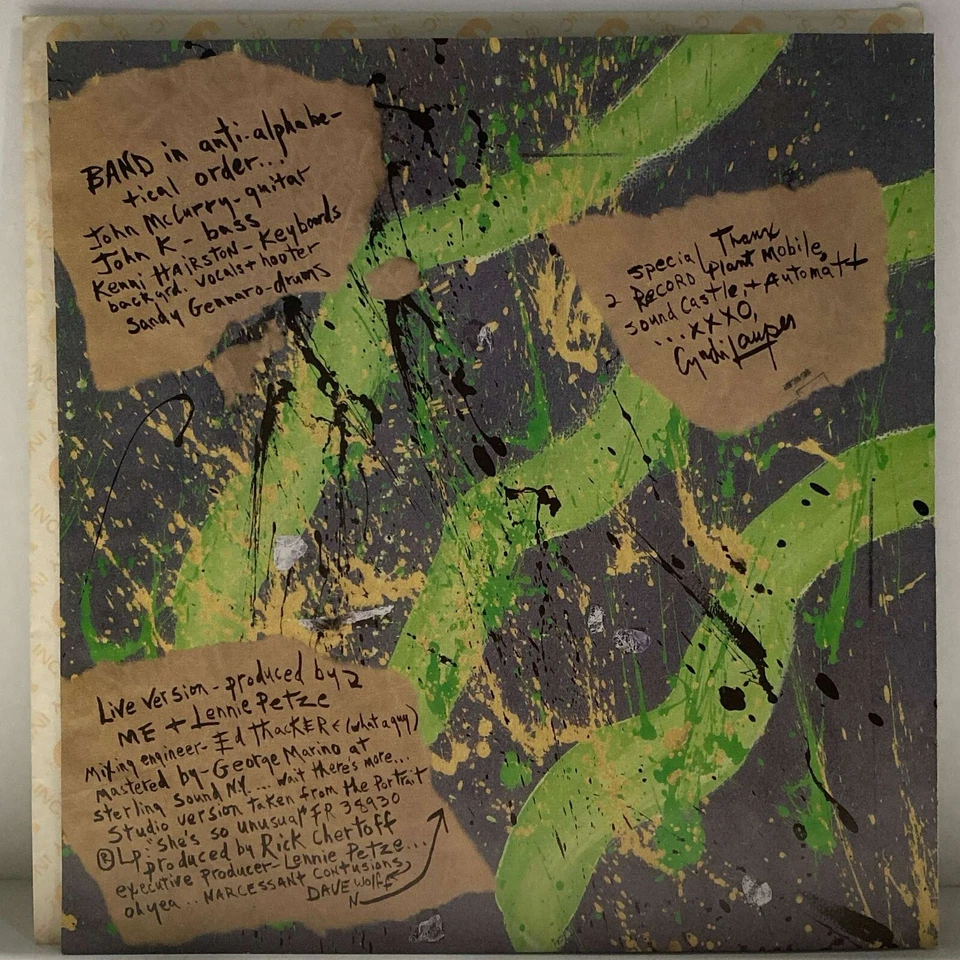 BAND in anti-alphabe-
tical order...
John McCurry-guitar
John K - bass
Kenni HAIRSTON - Keyboards
backgrd. vocals + hooter
Sandy Gennaro-drums
special Thanx
2 RECORD Plant Mobile,
Sound Castle, + Automatt
...XXXO,
Cyndi Lauper
Live version - produced by 2
ME + Lennie Petze
Mixing engineer- Ed THacKER < (what a guy)
Mastered by - George Marino at
Sterling Sound N.Y.... wait there's more...
Studio version taken from the Portrait
"she's so unusual" FR 38930
® LP produced by Rick Chertoff
executive producer - Lennie Petze...
oh yea... NARCESSANT CONTUSIONS,
DAVE Wolff
N